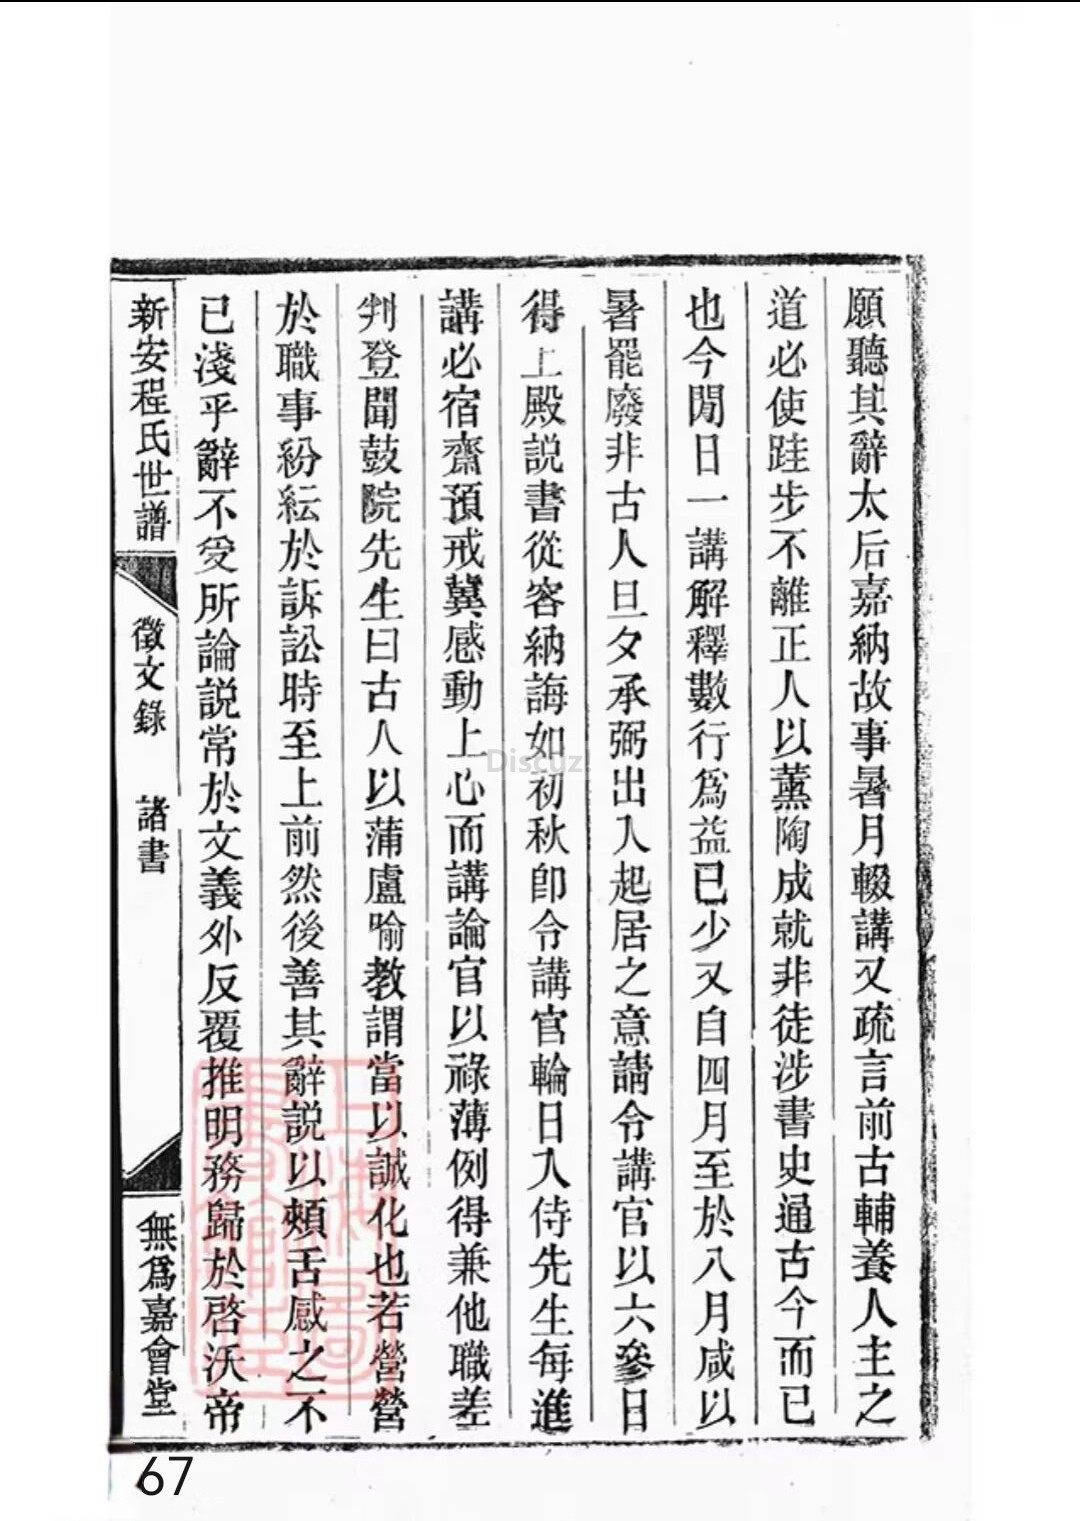 願聽其辭太后嘉納故事暑月輟講又疏言前古輔養人主之
道必使跬步不離正人以薰陶成就非徒涉書史通古今而已
也今閒日一講解釋數行爲益已少又自四月至於八月咸以
暑罷廢非古人旦夕承弼出入起居之意請令講官以六參日
得上殿説書從容納誨如初秋卽令講官輪日入侍先生每進
講必宿齋預戒冀感動上心而講論官以祿薄例得兼他職差
判登聞鼓院先生曰古人以蒲盧喻教謂當以誠化也若營營
於職事紛紜於訴訟時至上前然後善其辭説以頰舌感之不
已淺乎辭不受所論説常於文義外反覆推明務歸於啓沃帝
新安程氏世譜 徵文錄 諸書 無爲嘉會堂
上海圖書館藏
Discuz!
67